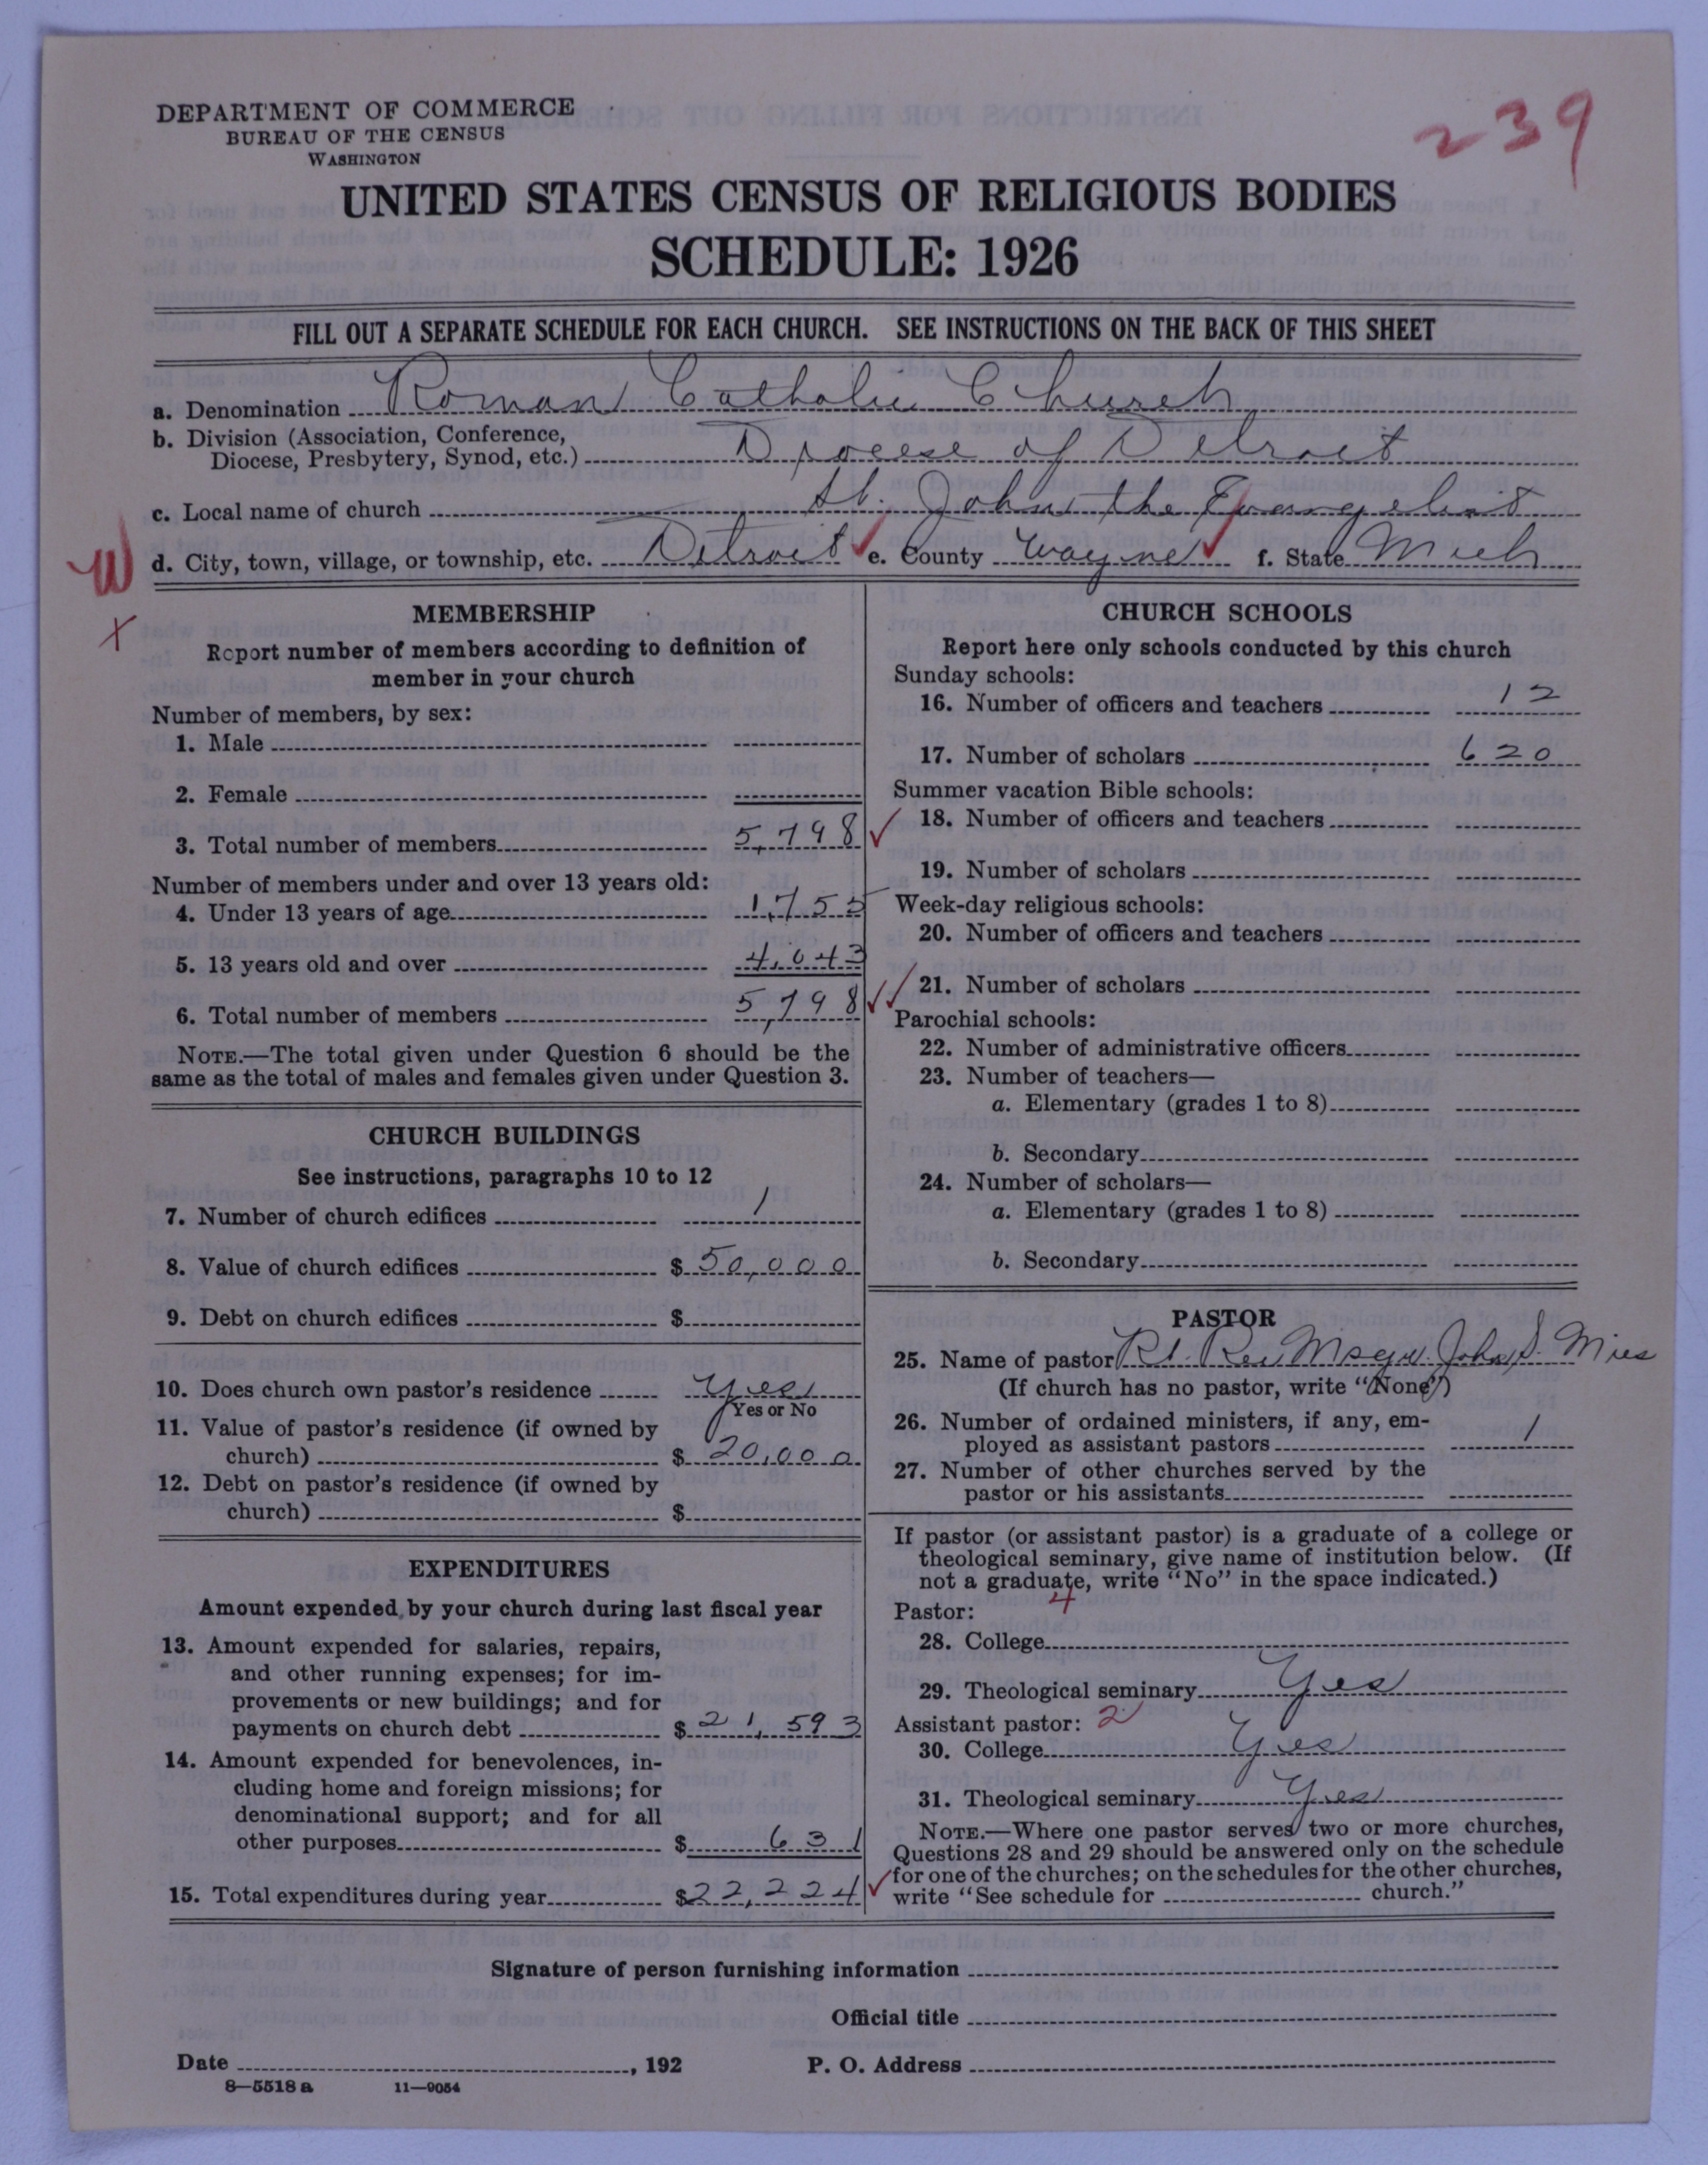 DEPARTMENT OF COMMERCE
BUREAU OF THE CENSUS
WASHINGTON
239
UNITED STATES CENSUS OF RELIGIOUS BODIES
SCHEDULE: 1926
FILL OUT A SEPARATE SCHEDULE FOR EACH CHURCH. SEE INSTRUCTIONS ON THE BACK OF THIS SHEET
a. Denomination Roman Catholic Church
b. Division (Association, Conference,
Diocese, Presbytery, Synod, etc.) Diocese of Detroit
c. Local name of church St. John the Evangelist
W d. City, town, village, or township, etc. Detroit e. County Wayne f. State Mich
X
MEMBERSHIP
Report number of members according to definition of
member in your church
Number of members, by sex:
1. Male
2. Female
3. Total number of members 5,798
Number of members under and over 13 years old:
4. Under 13 years of age 1,755
5. 13 years old and over 4,043
6. Total number of members 5,798
NOTE.—The total given under Question 6 should be the
same as the total of males and females given under Question 3.
CHURCH BUILDINGS
See instructions, paragraphs 10 to 12
7. Number of church edifices 1
8. Value of church edifices $ 50,000
9. Debt on church edifices $
10. Does church own pastor's residence Yes
Yes or No
11. Value of pastor's residence (if owned by
church) $ 20,000
12. Debt on pastor's residence (if owned by
church) $
EXPENDITURES
Amount expended by your church during last fiscal year
13. Amount expended for salaries, repairs,
and other running expenses; for im-
provements or new buildings; and for
payments on church debt $ 21,593
14. Amount expended for benevolences, in-
cluding home and foreign missions; for
denominational support; and for all
other purposes $ 631
15. Total expenditures during year $ 22,224
CHURCH SCHOOLS
Report here only schools conducted by this church
Sunday schools:
16. Number of officers and teachers 12
17. Number of scholars 620
Summer vacation Bible schools:
18. Number of officers and teachers
19. Number of scholars
Week-day religious schools:
20. Number of officers and teachers
21. Number of scholars
Parochial schools:
22. Number of administrative officers
23. Number of teachers—
a. Elementary (grades 1 to 8)
b. Secondary
24. Number of scholars—
a. Elementary (grades 1 to 8)
b. Secondary
PASTOR
25. Name of pastor Rt. Rev Msgr. John S. Mies
(If church has no pastor, write "None")
26. Number of ordained ministers, if any, em-
ployed as assistant pastors 1
27. Number of other churches served by the
pastor or his assistants
If pastor (or assistant pastor) is a graduate of a college or
theological seminary, give name of institution below. (If
not a graduate, write "No" in the space indicated.)
Pastor: 4
28. College
29. Theological seminary Yes
Assistant pastor: 2
30. College Yes
31. Theological seminary Yes
NOTE.—Where one pastor serves two or more churches,
Questions 28 and 29 should be answered only on the schedule
for one of the churches; on the schedules for the other churches,
write "See schedule for church."
Signature of person furnishing information
Official title
Date , 192
P. O. Address
8—5518 a 11—9054